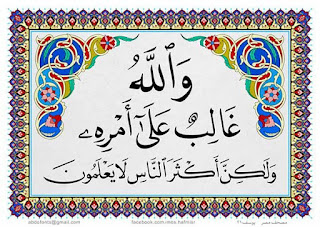 وَٱللَّهُ
غَالِبٌ عَلَىٰٓ أَمْرِهِۦ
وَلَٰكِنَّ أَكْثَرَ ٱلنَّاسِ لَا يَعْلَمُونَ
facebook.com/mtov.hafmian